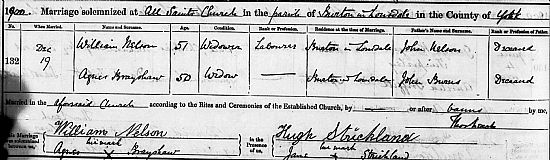 1900. Marriage solemnized at All Saints Church in the parish of Burton in Lonsdale in the County of York
When Married. Name and Surname. Age. Condition. Rank or Profession. Residence at the time of Marriage. Father's Name and Surname. Rank or Profession of Father.
132 Dec 19 William Nelson 51 Widower Labourer Burton in Lonsdale John Nelson Deceased
Agnes Brayshaw 50 Widow — Burton in Lonsdale John Burns Deceased
Married in the aforesaid Church according to the Rites and Ceremonies of the Established Church, by — or after banns by me,
This Marriage was solemnized between us, William Nelson in the Presence of us, Hugh Strickland
his mark
Agnes X Brayshaw Jane X Strickland
her mark